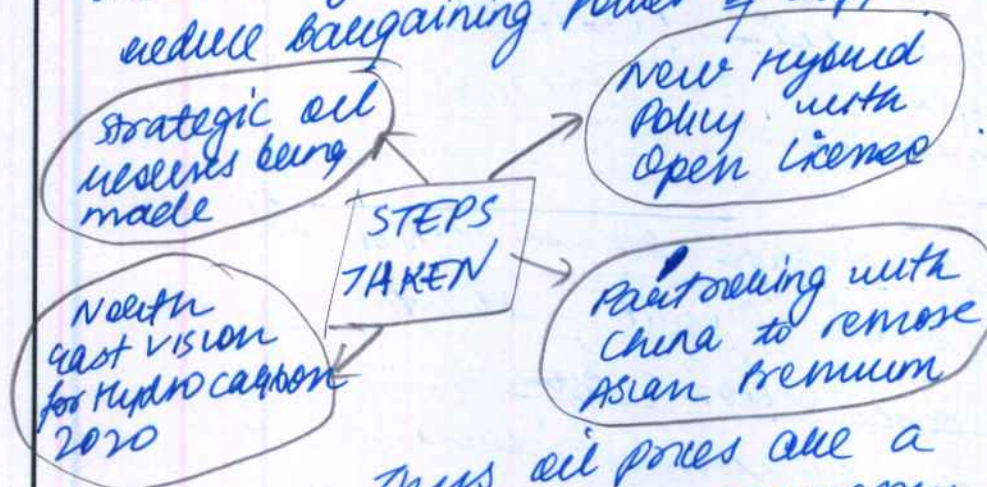 reduce bargaining Power of
Strategic oil
reserves being
made
New Hybrid
Policy with
Open License
STEPS
TAKEN
North
East Vision
for Hydrocarbon
2020
Partnering with
China to remove
Asian Premium
Thus oil prices are a